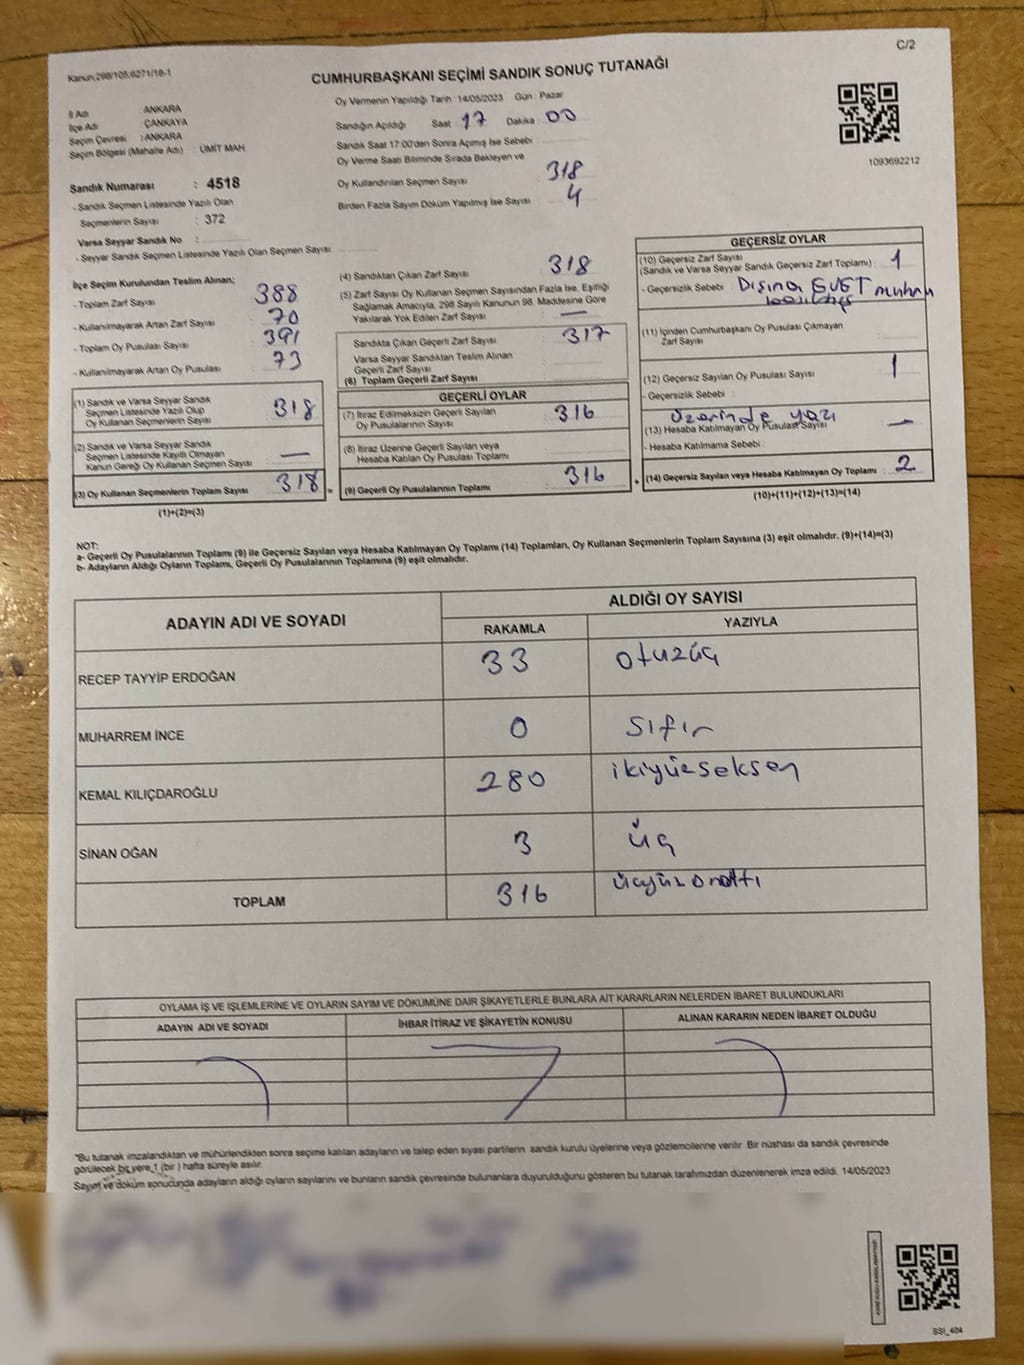 C/2
Kanun.298/105,6271/18-1
CUMHURBAŞKANI SEÇİMİ SANDIK SONUÇ TUTANAĞI
İl Adı ANKARA
İlçe Adı ÇANKAYA
Seçim Çevresi : ANKARA
Seçim Bölgesi (Mahalle Adı) : ÜMİT MAH
Sandık Numarası : 4518
- Sandık Seçmen Listesinde Yazılı Olan
Seçmenlerin Sayısı : 372
Varsa Seyyar Sandık No :
- Seyyar Sandık Seçmen Listesinde Yazılı Olan Seçmen Sayısı
Oy Vermenin Yapıldığı Tarih :14/05/2023 Gün : Pazar
Sandığın Açıldığı Saat 17 Dakika 00
Sandık Saat 17:00'den Sonra Açımış İse Sebebi :
Oy Verme Saati Bitiminde Sırada Bekleyen ve
Oy Kullandırılan Seçmen Sayısı 318
Birden Fazla Sayım Döküm Yapılmış İse Sayısı 4
1093692212
İlçe Seçim Kurulundan Teslim Alınan;
- Toplam Zarf Sayısı 388
- Kullanılmayarak Artan Zarf Sayısı 70
- Toplam Oy Pusulası Sayısı 391
- Kullanılmayarak Artan Oy Pusulası 73
(1) Sandık ve Varsa Seyyar Sandık
Seçmen Listesinde Yazılı Olup
Oy Kullanan Seçmenlerin Sayısı 318
(2) Sandık ve Varsa Seyyar Sandık
Seçmen Listesinde Kayıtlı Olmayan
Kanun Gereği Oy Kullanan Seçmen Sayısı —
(3) Oy Kullanan Seçmenlerin Toplam Sayısı 318 =
(1)+(2)=(3)
(4) Sandıktan Çıkan Zarf Sayısı 318
(5) Zarf Sayısı Oy Kullanan Seçmen Sayısından Fazla İse, Eşitliği
Sağlamak Amacıyla, 298 Sayılı Kanunun 98. Maddesine Göre
Yakılarak Yok Edilen Zarf Sayısı —
Sandıkta Çıkan Geçerli Zarf Sayısı 317
Varsa Seyyar Sandıktan Teslim Alınan
Geçerli Zarf Sayısı
(6) Toplam Geçerli Zarf Sayısı
GEÇERLİ OYLAR
(7) İtiraz Edilmeksizin Geçerli Sayılan
Oy Pusulasının Sayısı 316
(8) İtiraz Üzerine Geçerli Sayılan veya
Hesaba Katılan Oy Pusulası Toplamı
(9) Geçerli Oy Pusulalarının Toplamı 316 +
GEÇERSİZ OYLAR
(10) Geçersiz Zarf Sayısı
(Sandık ve Varsa Seyyar Sandık Geçersiz Zarf Toplamı) : 1
- Geçersizlik Sebebi : Dışına EVET
(11) İçinden Cumhurbaşkanı Oy Pusulası Çıkmayan
Zarf Sayısı
(12) Geçersiz Sayılan Oy Pusulası Sayısı 1
- Geçersizlik Sebebi :
Üzerinde yazı
(13) Hesaba Katılmayan Oy Pusulası Sayısı —
- Hesaba Katılmama Sebebi :
(14) Geçersiz Sayılan veya Hesaba Katılmayan Oy Toplamı : 2
(10)+(11)+(12)+(13)=(14)
NOT:
a- Geçerli Oy Pusulalarının Toplamı (9) ile Geçersiz Sayılan veya Hesaba Katılmayan Oy Toplamı (14) Toplamları, Oy Kullanan Seçmenlerin Toplam Sayısına (3) eşit olmalıdır. (9)+(14)=(3)
b- Adayların Aldığı Oyların Toplamı, Geçerli Oy Pusulalarının Toplamına (9) eşit olmalıdır.
ADAYIN ADI VE SOYADI
ALDIĞI OY SAYISI
RAKAMLA YAZIYLA
RECEP TAYYİP ERDOĞAN 33 otuzüç
MUHARREM İNCE 0 sıfır
KEMAL KILIÇDAROĞLU 280 ikiyüzseksen
SİNAN OĞAN 3 üç
TOPLAM 316 üçyüzonaltı
OYLAMA İŞ VE İŞLEMLERİNE VE OYLARIN SAYIM VE DÖKÜMÜNE DAİR ŞİKAYETLERLE BUNLARA AİT KARARLARIN NELERDEN İBARET BULUNDUKLARI
ADAYIN ADI VE SOYADI İHBAR İTİRAZ VE ŞİKAYETİN KONUSU ALINAN KARARIN NEDEN İBARET OLDUĞU
*Bu tutanak imzalandıktan ve mühürlendikten sonra seçime katılan adayların ve talep eden siyasi partilerin sandık kurulu üyelerine veya gözlemcilerine verilir. Bir nüshası da sandık çevresinde
görülecek bir yere 1 (bir ) hafta süreyle asılır.
Sayım ve döküm sonucunda adayların aldığı oyların sayılarını ve bunların sandık çevresinde bulunanlara duyurulduğunu gösteren bu tutanak tarafımızdan düzenlenerek imza edildi. 14/05/2023
SSI_404